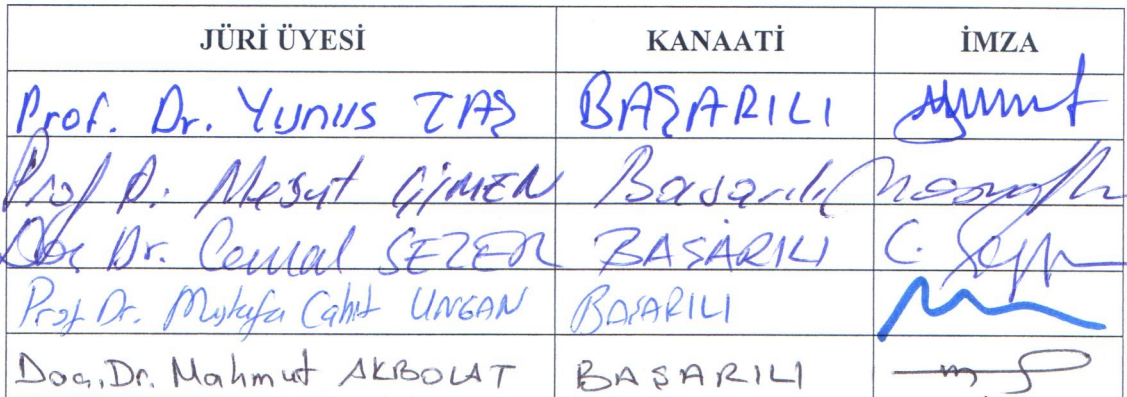 JÜRİ ÜYESİ KANAATİ İMZA
Prof. Dr. Yunus TAŞ BAŞARILI
Prof. D. Mesut ÇİMEN Başarılı
Doç Dr. Cemal SEZER BAŞARILI C.
Prof Dr. Mustafa Cahit UNGAN BAŞARILI
Doç. Dr. Mahmut AKBOLAT BAŞARILI